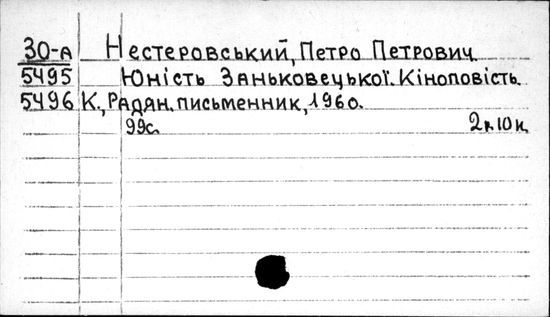 30-А Нестеровський, Петро Петрович.
5495 Юність Заньковецької. Кіноповість.
5496 К., Радян. письменник, 1960.
99с. 2к.10к.